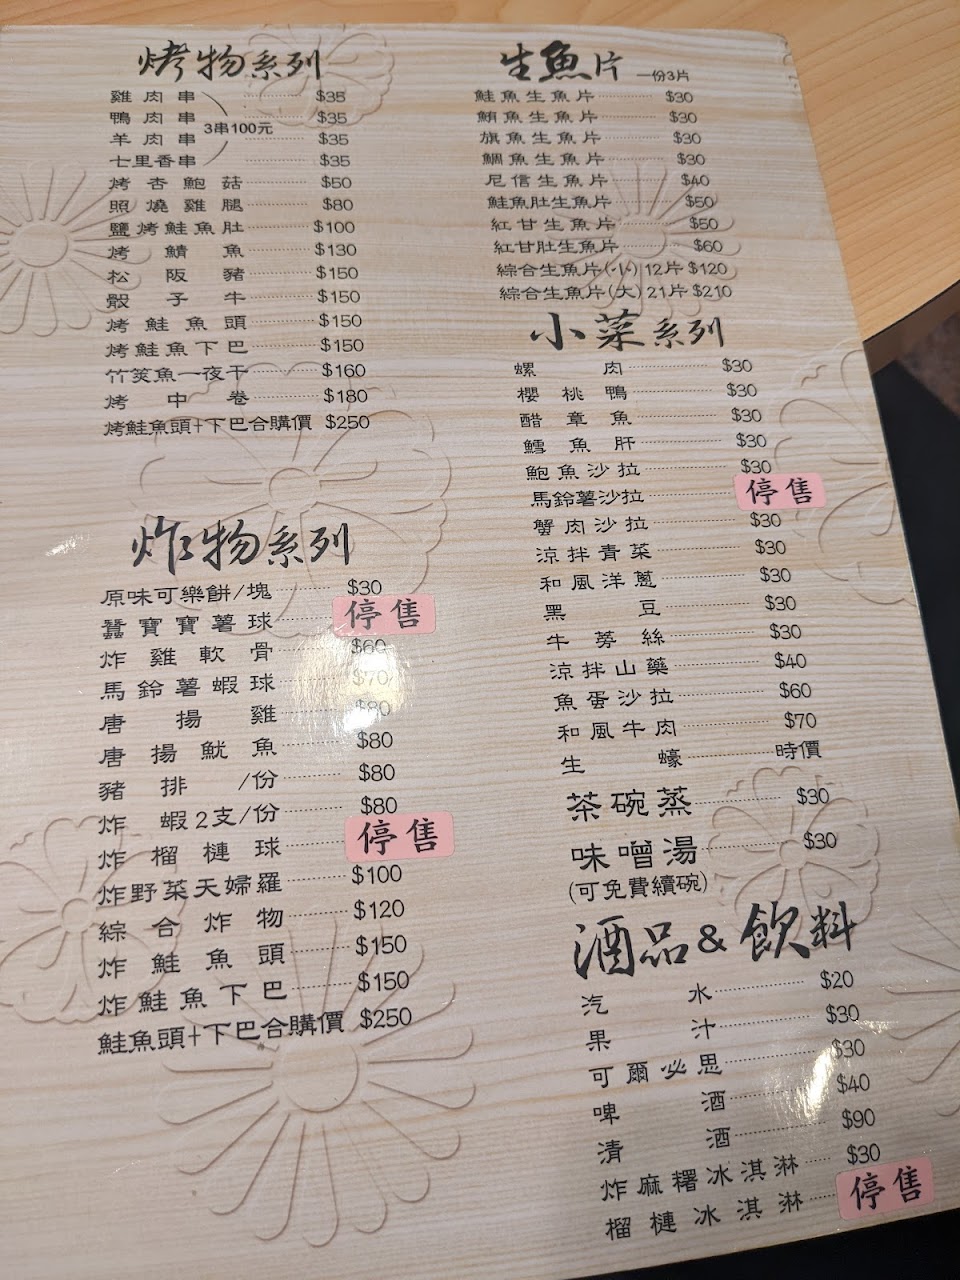 烤物系列
雞肉串 $35
鴨肉串 $35
3串100元
羊肉串 $35
七里香串 $35
烤杏鮑菇 $50
照燒雞腿 $80
鹽烤鮭魚肚 $100
烤鯖魚 $130
松阪豬 $150
骰子牛 $150
烤鮭魚頭 $150
烤鮭魚下巴 $150
竹筴魚一夜干 $160
烤中卷 $180
烤鮭魚頭+下巴合購價 $250
炸物系列
原味可樂餅/塊 $30
蠶寶寶薯球 停售
炸雞軟骨 $60
馬鈴薯蝦球 $70
唐揚雞 $80
唐揚魷魚 $80
豬排/份 $80
炸蝦2支/份 $80
炸榴槤球 停售
炸野菜天婦羅 $100
綜合炸物 $120
炸鮭魚頭 $150
炸鮭魚下巴 $150
鮭魚頭+下巴合購價 $250
生魚片 一份3片
鮭魚生魚片 $30
鮪魚生魚片 $30
旗魚生魚片 $30
鯛魚生魚片 $30
尼信生魚片 $40
鮭魚肚生魚片 $50
紅甘生魚片 $50
紅甘肚生魚片 $60
綜合生魚片(小) 12片 $120
綜合生魚片(大) 21片 $210
小菜系列
螺肉 $30
櫻桃鴨 $30
醋章魚 $30
鱈魚肝 $30
鮑魚沙拉 $30
馬鈴薯沙拉 停售
蟹肉沙拉 $30
涼拌青菜 $30
和風洋蔥 $30
黑豆 $30
牛蒡絲 $30
涼拌山藥 $40
魚蛋沙拉 $60
和風牛肉 $70
生蠔 時價
茶碗蒸 $30
味噌湯 $30
(可免費續碗)
酒品&飲料
汽水 $20
果汁 $30
可爾必思 $30
啤酒 $40
清酒 $90
炸麻糬冰淇淋 $30
榴槤冰淇淋 停售